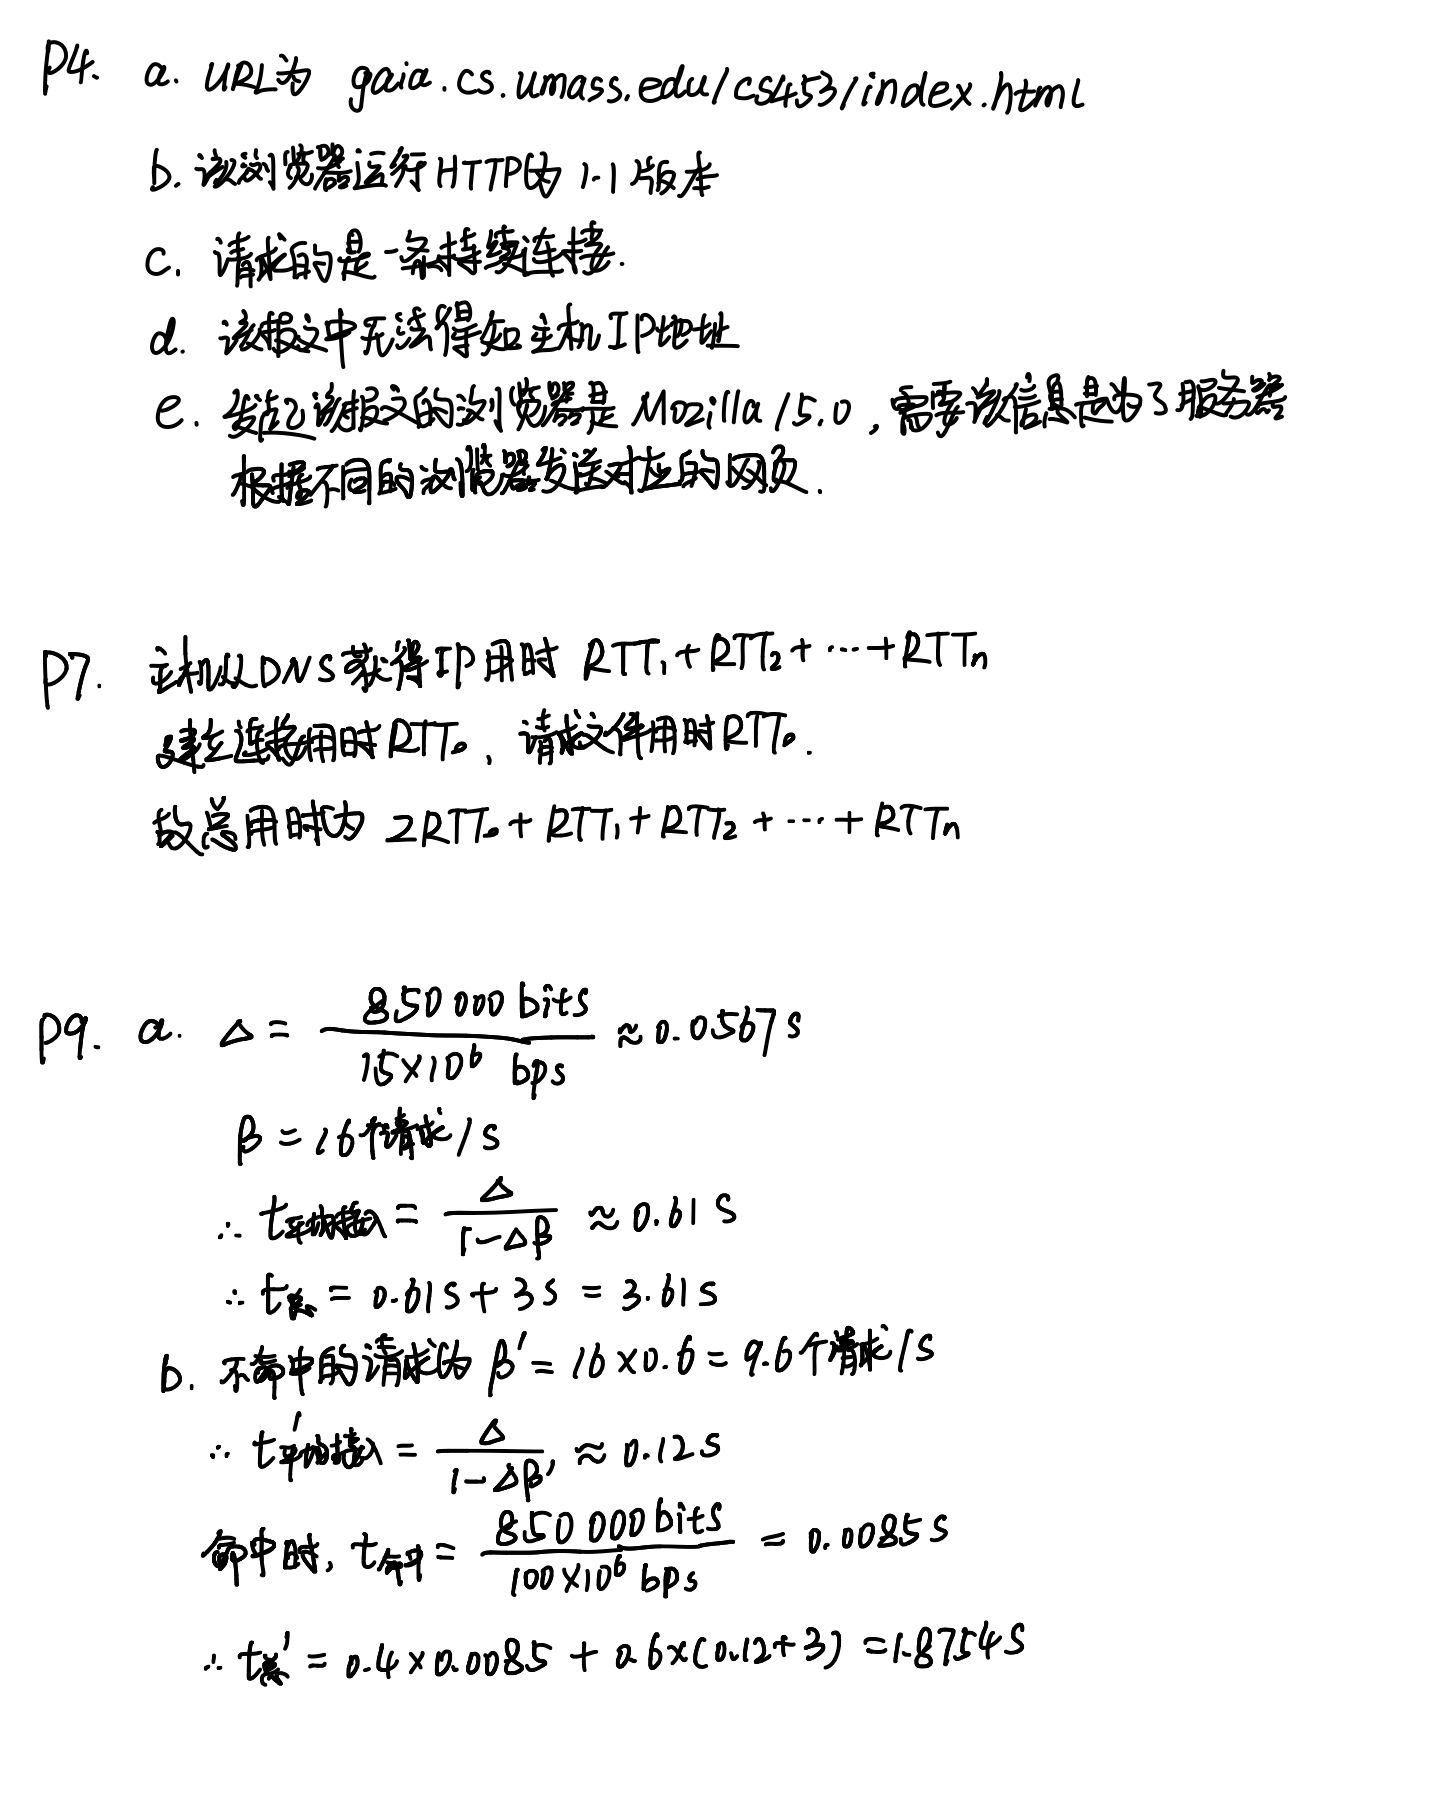 P4. a. URL为 gaia.cs.umass.edu/cs453/index.html
b. 该浏览器运行HTTP的1.1版本
c. 请求的是一条持续连接.
d. 该报文中无法得知主机IP地址
e. 发起该报文的浏览器是Mozilla/5.0,需要该信息是为了服务器
根据不同的浏览器发送对应的网页.
P7. 主机从DNS获得IP用时 RTT₁+RTT₂+…+RTTₙ
建立连接用时RTT₀、请求文件用时RTT₀.
故总用时为 2RTT₀+RTT₁+RTT₂+…+RTTₙ
P9. a. Δ = 850 000 bits / 15×10⁶ bps ≈ 0.0567 s
β = 16个请求/s
∴ t平均接入 = Δ / 1-Δβ ≈ 0.61 s
∴ t总 = 0.61s + 3s = 3.61s
b. 不命中的请求为 β' = 16×0.6 = 9.6个请求/s
∴ t'平均接入 = Δ / 1-Δβ' ≈ 0.12s
命中时, t命中 = 850 000 bits / 100×10⁶ bps = 0.0085 s
∴ t总' = 0.4×0.0085 + 0.6×(0.12+3) = 1.8754s